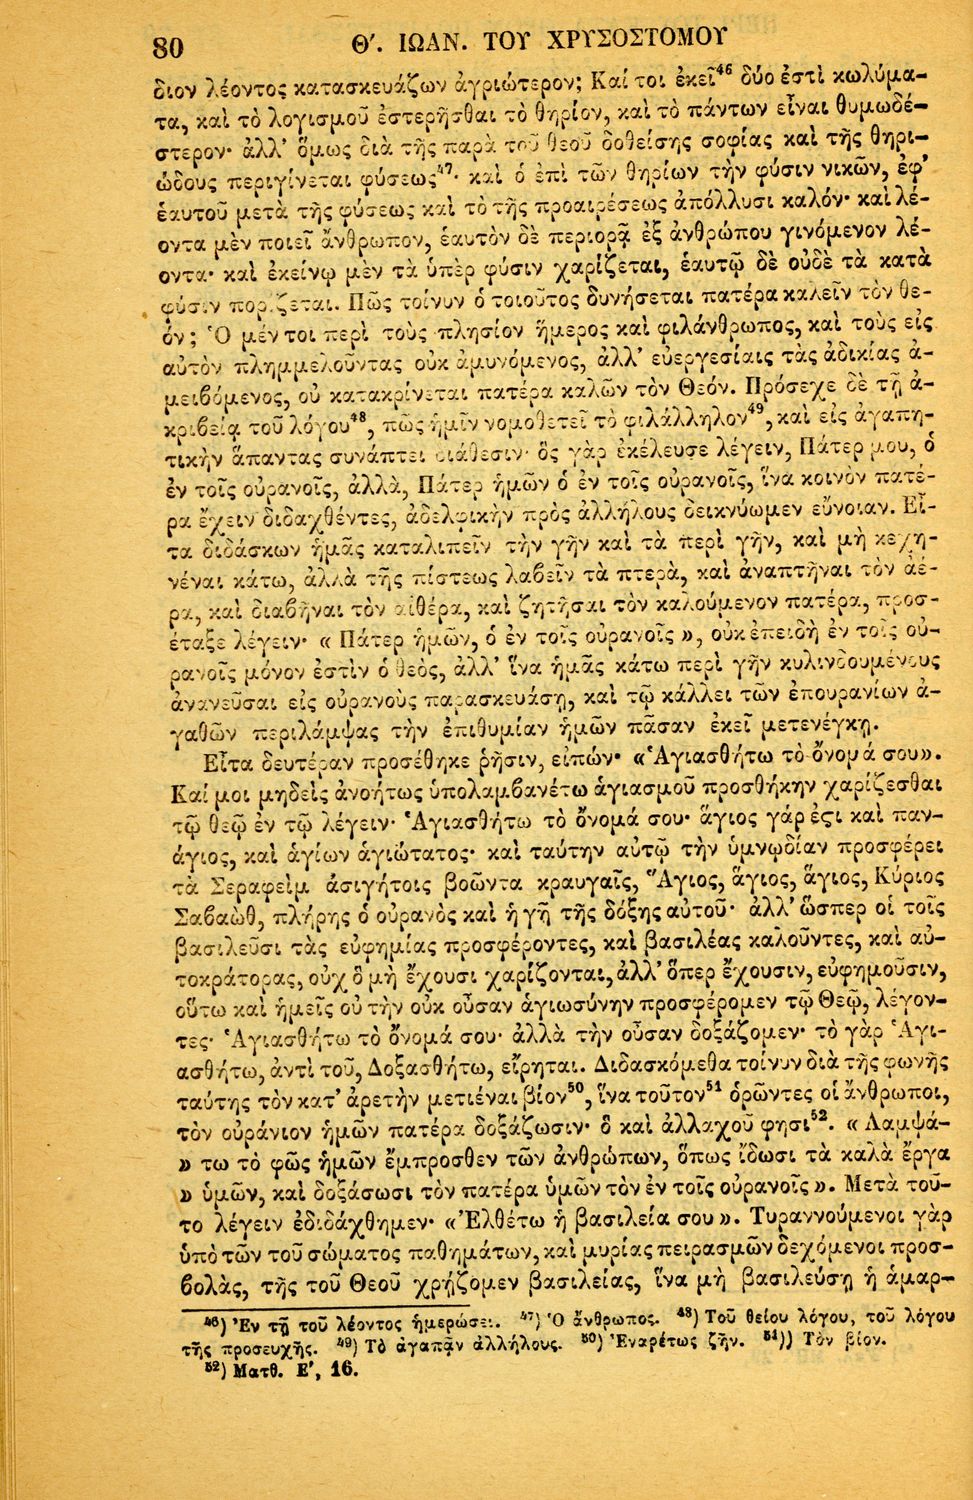 80
Θ΄. ΙΩΑΝ. ΤΟΥ ΧΡΥΣΟΣΤΟΜΟΥ
διον λέοντος κατασκευάζων ἀγριώτερον; Καί τοι ἐκεῖ⁴⁶ δύο ἐστὶ κωλύμα-
τα, καὶ τὸ λογισμοῦ ἐστερῆσθαι τὸ θηρίον, καὶ τὸ πάντων εἶναι θυμωδέ-
στερον· ἀλλ’ ὅμως διὰ τῆς παρὰ τοῦ θεοῦ δοθείσης σοφίας καὶ τῆς θηρι-
ώδους περιγίνεται φύσεως⁴⁷· καὶ ὁ ἐπὶ τῶν θηρίων τὴν φύσιν νικῶν, ἐφ’
ἑαυτοῦ μετὰ τῆς φύσεως καὶ τὸ τῆς προαιρέσεως ἀπόλλυσι καλόν· καὶ λέ-
οντα μὲν ποιεῖ ἄνθρωπον, ἑαυτὸν δὲ περιορᾷ ἐξ ἀνθρώπου γινόμενον λέ-
οντα· καὶ ἐκείνῳ μὲν τὰ ὑπὲρ φύσιν χαρίζεται, ἑαυτῷ δὲ οὐδὲ τὰ κατὰ
φύσιν πορίζεται. Πῶς τοίνυν ὁ τοιοῦτος δυνήσεται πατέρα καλεῖν τὸν θε-
όν; Ὁ μέν τοι περὶ τοὺς πλησίον ἥμερος καὶ φιλάνθρωπος, καὶ τοὺς εἰς
αὐτὸν πλημμελοῦντας οὐκ ἀμυνόμενος, ἀλλ’ εὐεργεσίαις τὰς ἀδικίας ἀ-
μειβόμενος, οὐ κατακρίνεται πατέρα καλῶν τὸν Θεόν. Πρόσεχε δὲ τῇ ἀ-
κριβείᾳ τοῦ λόγου⁴⁸, πῶς ἡμῖν νομοθετεῖ τὸ φιλάλληλον⁴⁹, καὶ εἰς ἀγαπη-
τικὴν ἅπαντας συνάπτει διάθεσιν· ὃς γὰρ ἐκέλευσε λέγειν, Πάτερ μου, ὁ
ἐν τοῖς οὐρανοῖς, ἀλλὰ, Πάτερ ἡμῶν ὁ ἐν τοῖς οὐρανοῖς, ἵνα κοινὸν πατέ-
ρα ἔχειν διδαχθέντες, ἀδελφικὴν πρὸς ἀλλήλους δεικνύωμεν εὔνοιαν. Εἶ-
τα διδάσκων ἡμᾶς καταλιπεῖν τὴν γῆν καὶ τὰ περὶ γῆν, καὶ μὴ κεχη-
νέναι κάτω, ἀλλὰ τῆς πίστεως λαβεῖν τὰ πτερὰ, καὶ ἀναπτῆναι τὸν ἀέ-
ρα, καὶ διαβῆναι τὸν αἰθέρα, καὶ ζητῆσαι τὸν καλούμενον πατέρα, προσ-
έταξε λέγειν· « Πάτερ ἡμῶν, ὁ ἐν τοῖς οὐρανοῖς », οὐκ ἐπειδὴ ἐν τοῖς οὐ-
ρανοῖς μόνον ἐστὶν ὁ θεὸς, ἀλλ’ ἵνα ἡμᾶς κάτω περὶ γῆν κυλινδουμένους
ἀνανεῦσαι εἰς οὐρανοὺς παρασκευάσῃ, καὶ τῷ κάλλει τῶν ἐπουρανίων ἀ-
γαθῶν περιλάμψας τὴν ἐπιθυμίαν ἡμῶν πᾶσαν ἐκεῖ μετενέγκῃ.
Εἶτα δευτέραν προσέθηκε ῥῆσιν, εἰπών· «Ἁγιασθήτω τὸ ὄνομά σου».
Καί μοι μηδεὶς ἀνοήτως ὑπολαμβανέτω ἁγιασμοῦ προσθήκην χαρίζεσθαι
τῷ θεῷ ἐν τῷ λέγειν· Ἁγιασθήτω τὸ ὄνομά σου· ἅγιος γάρ ἐςι καὶ παν-
άγιος, καὶ ἁγίων ἁγιώτατος· καὶ ταύτην αὐτῷ τὴν ὑμνῳδίαν προσφέρει
τὰ Σεραφεὶμ ἀσιγήτοις βοῶντα κραυγαῖς, Ἅγιος, ἅγιος, ἅγιος, Κύριος
Σαβαὼθ, πλήρης ὁ οὐρανὸς καὶ ἡ γῆ τῆς δόξης αὐτοῦ· ἀλλ’ ὥσπερ οἱ τοῖς
βασιλεῦσι τὰς εὐφημίας προσφέροντες, καὶ βασιλέας καλοῦντες, καὶ αὐ-
τοκράτορας, οὐχ ὃ μὴ ἔχουσι χαρίζονται, ἀλλ’ ὅπερ ἔχουσιν, εὐφημοῦσιν,
οὕτω καὶ ἡμεῖς οὐ τὴν οὐκ οὖσαν ἁγιωσύνην προσφέρομεν τῷ Θεῷ, λέγον-
τες· Ἁγιασθήτω τὸ ὄνομά σου· ἀλλὰ τὴν οὖσαν δοξάζομεν· τὸ γὰρ Ἁγι-
ασθήτω, ἀντὶ τοῦ, Δοξασθήτω, εἴρηται. Διδασκόμεθα τοίνυν διὰ τῆς φωνῆς
ταύτης τὸν κατ’ ἀρετὴν μετιέναι βίον⁵⁰, ἵνα τοῦτον⁵¹ ὁρῶντες οἱ ἄνθρωποι,
τὸν οὐράνιον ἡμῶν πατέρα δοξάζωσιν· ὃ καὶ ἀλλαχοῦ φησι⁵². « Λαμψά-
» τω τὸ φῶς ἡμῶν ἔμπροσθεν τῶν ἀνθρώπων, ὅπως ἴδωσι τὰ καλὰ ἔργα
» ὑμῶν, καὶ δοξάσωσι τὸν πατέρα ὑμῶν τὸν ἐν τοῖς οὐρανοῖς ». Μετὰ τοῦ-
το λέγειν ἐδιδάχθημεν· «Ἐλθέτω ἡ βασιλεία σου ». Τυραννούμενοι γὰρ
ὑπὸ τῶν τοῦ σώματος παθημάτων, καὶ μυρίας πειρασμῶν δεχόμενοι προσ-
βολὰς, τῆς τοῦ Θεοῦ χρῄζομεν βασιλείας, ἵνα μὴ βασιλεύσῃ ἡ ἁμαρ-
⁴⁶) Ἐν τῇ τοῦ λέοντος ἡμερώσει. ⁴⁷) Ὁ ἄνθρωπος. ⁴⁸) Τοῦ θείου λόγου, τοῦ λόγου
τῆς προσευχῆς. ⁴⁹) Τὸ ἀγαπᾷν ἀλλήλους. ⁵⁰) Ἐναρέτως ζῆν. ⁵¹)) Τὸν βίον.
⁵²) Ματθ. Ε΄, 16.